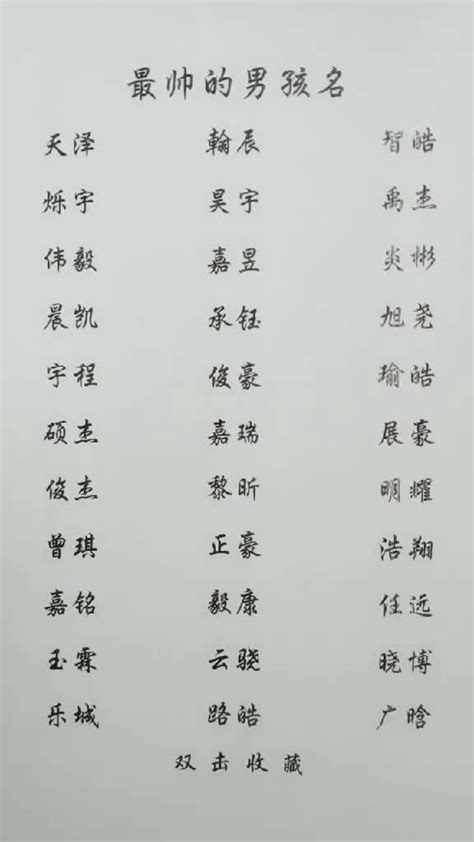 最帅的男孩名
天泽 翰辰 智皓
烁宇 昊宇 禹杰
伟毅 嘉昱 炎彬
晨凯 承钰 旭尧
宇程 俊豪 瑜皓
硕杰 嘉瑞 展豪
俊杰 黎昕 明耀
曾琪 正豪 浩翔
嘉铭 毅康 任远
玉霖 云骁 晓博
乐城 路皓 广晗
双击收藏